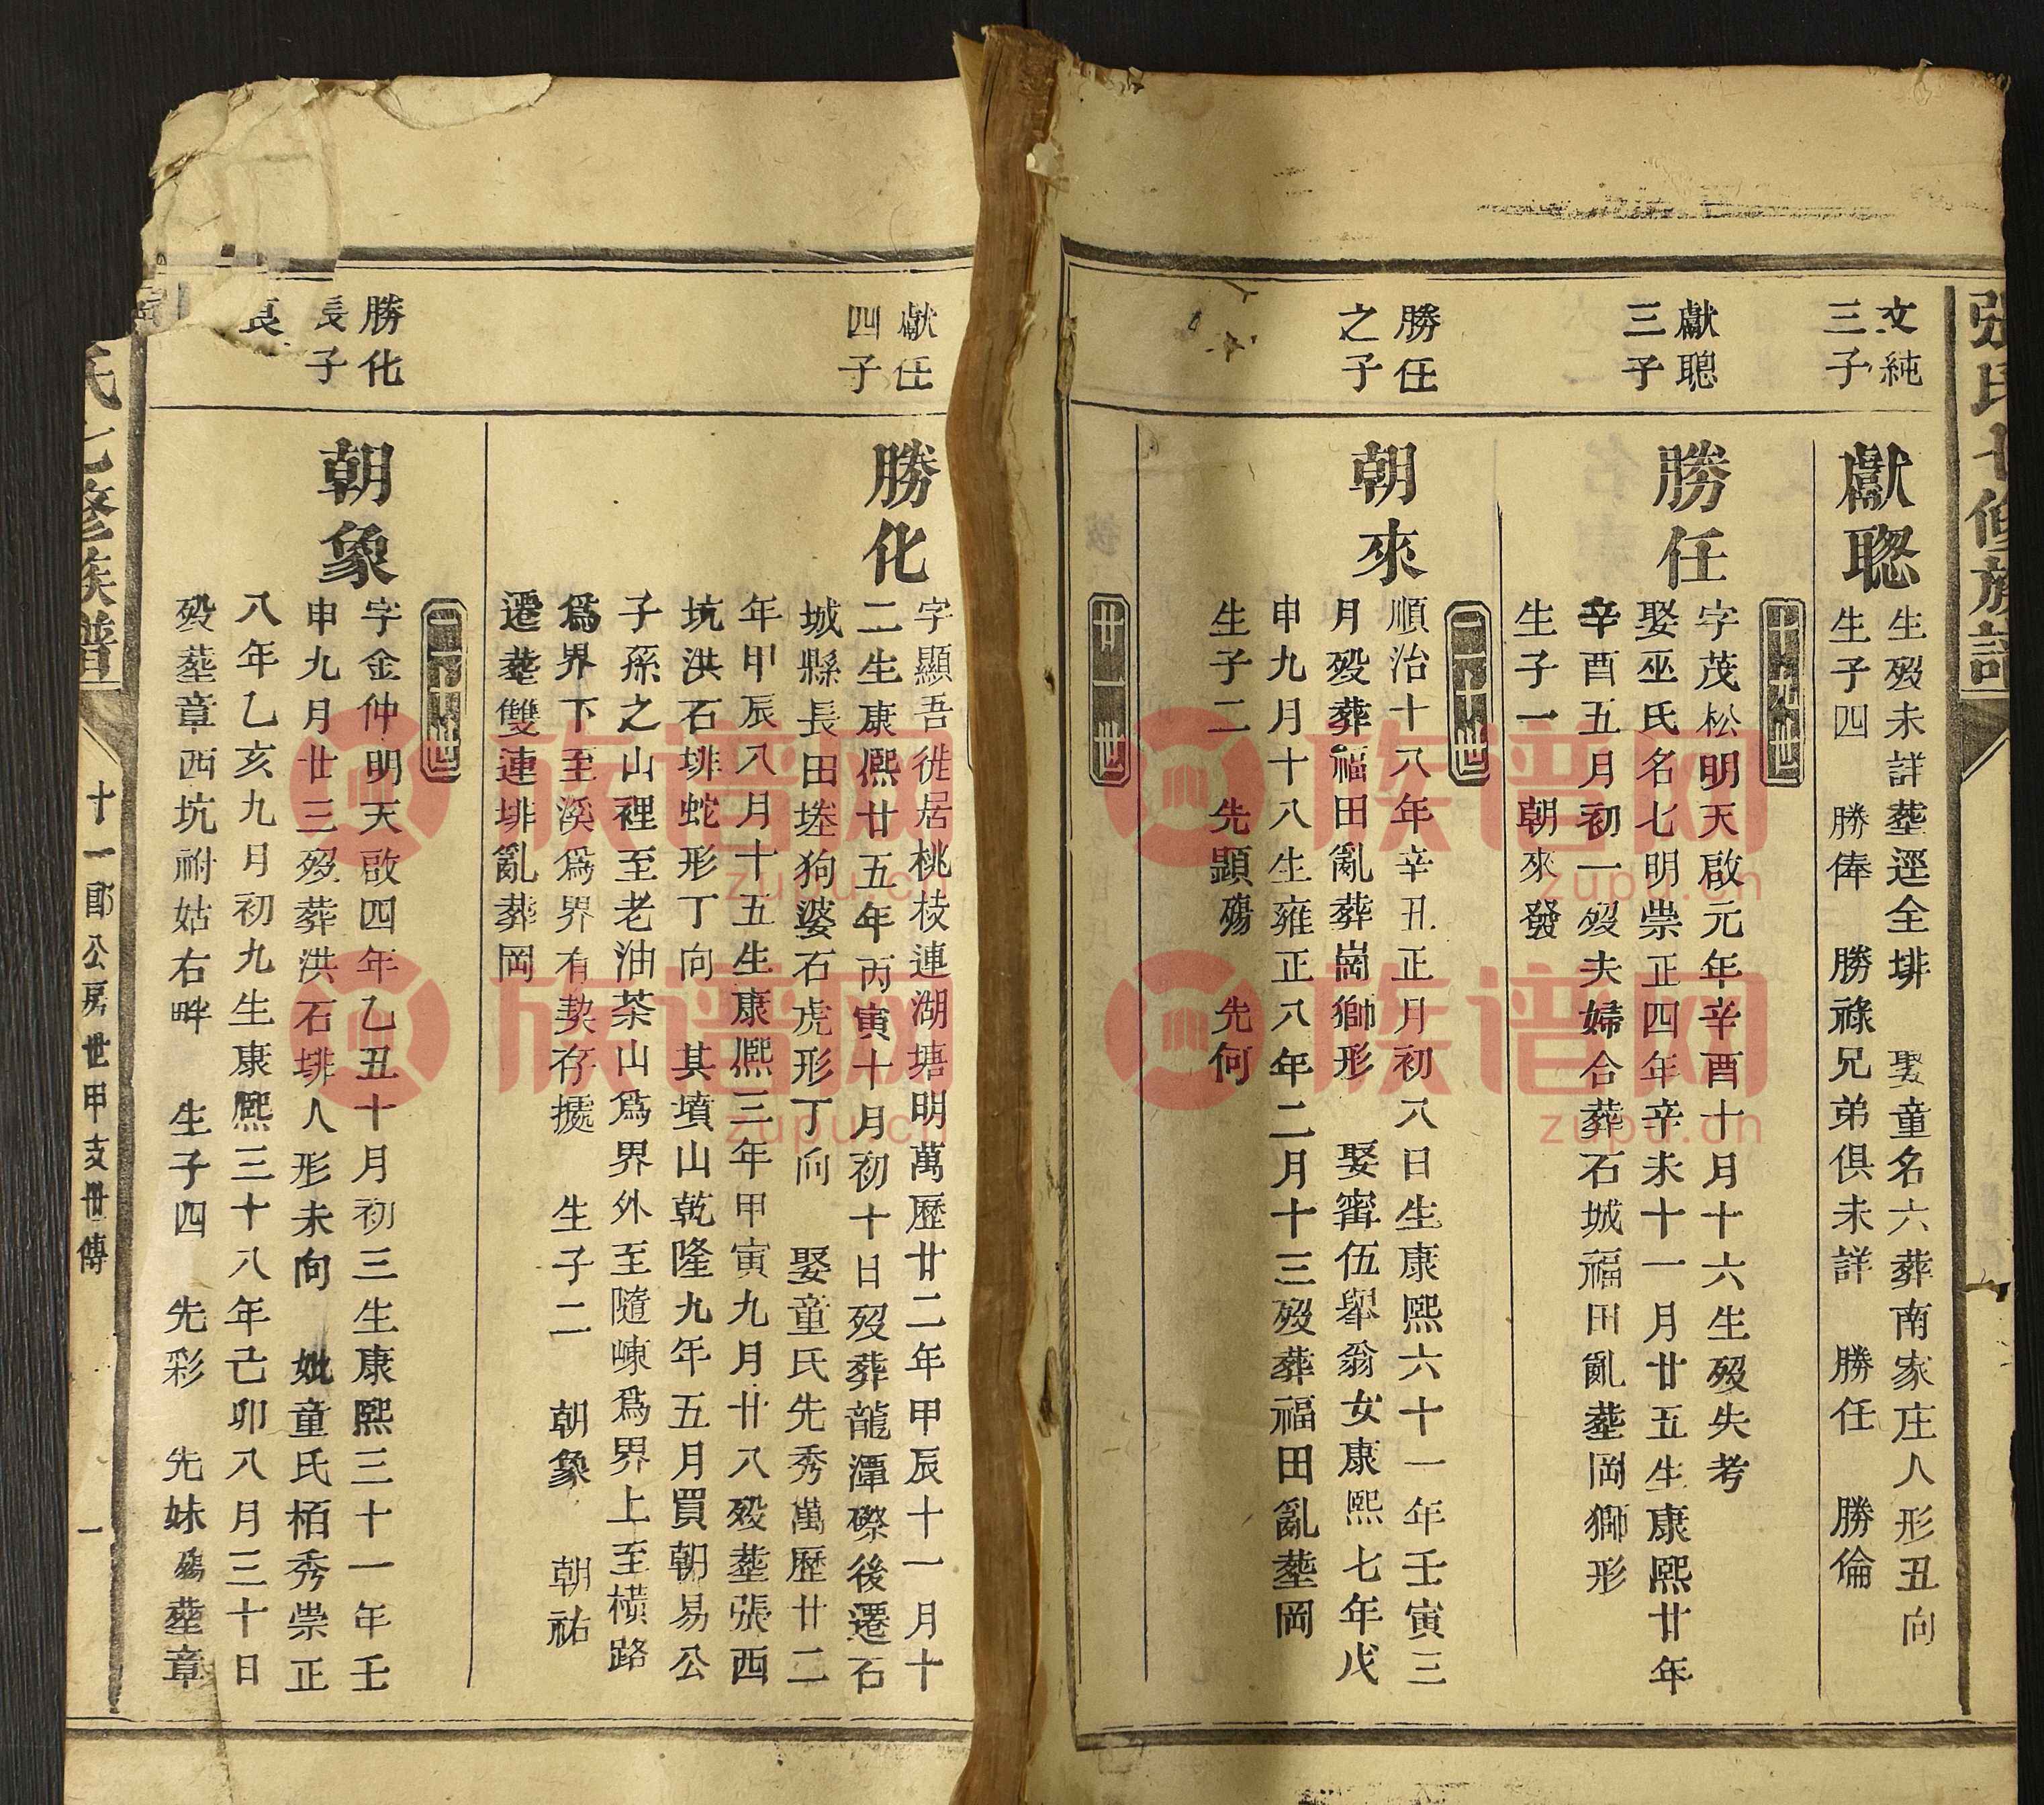 張氏七修族譜
文純
三子
獻聰
生歿未詳塟逕全堋 娶童名六葬南家庄人形丑向
生子四 勝俸 勝祿兄弟俱未詳 勝任 勝倫
十九世
獻聰
三子
勝任
字茂松明天啟元年辛酉十月十六生歿失考
娶巫氏名七明崇正四年辛未十一月廿五生康熙廿年
辛酉五月初一歿夫婦合葬石城福田亂塟岡獅形
生子一 朝來發
二十世
勝任
之子
朝來
順治十八年辛丑正月初八日生康熙六十一年壬寅三
月歿葬福田亂葬崗獅形 娶甯伍舉翁女康熙七年戊
申九月十八生雍正八年二月十三歿葬福田亂塟岡
生子二 先顯殤 先何
廿一世
獻任
四子
勝化
字顯吾徙居桃枝連湖塘明萬歷廿二年甲辰十一月十
二生康熙廿五年丙寅十月初十日歿葬龍潭磜後遷石
城縣長田塂狗婆石虎形丁向 娶童氏先秀萬歷廿二
年甲辰八月十五生康熙三年甲寅九月廿八歿塟張西
坑洪石堋蛇形丁向 其墳山乾隆九年五月買朝易公
子孫之山裡至老油茶山為界外至隨崠為界上至橫路
為界下至溪為界有契存據 生子二 朝象 朝祐
遷塟雙連堋亂葬岡
二十世
勝化
長子
朝象
字金仲明天啟四年乙丑十月初三生康熙三十一年壬
申九月廿三歿葬洪石堋人形未向 妣童氏栢秀崇正
八年乙亥九月初九生康熙三十八年己卯八月三十日
歿塟章西坑祔姑右畔 生子四 先彩 先妹殤塟章
氏七修族譜
十一郎公房世甲支世傳
一
族谱网
zupu.cn
族谱网
zupu.cn
族谱网
zupu.cn
族谱网
zupu.cn